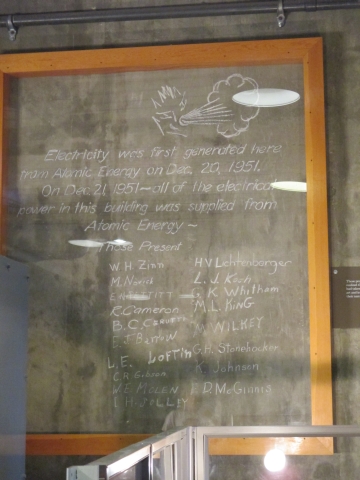 Electricity was first generated here
from Atomic Energy on Dec. 20, 1951.
On Dec 21, 1951 — all of the electrical
power in this building was supplied from
Atomic Energy ~
Those Present
W. H. Zinn
H V Lichtenberger
M. Novick
L. J. Koch
G K Whitham
R Cameron
M. L. KING
B. C. Cerutti
WILKEY
E. J. Barrow
L. E. LOFTIN
G. H. Stonehocker
C R Gibson
K. Johnson
W. E. MOLEN
E. D. McGinnis
JOLLEY